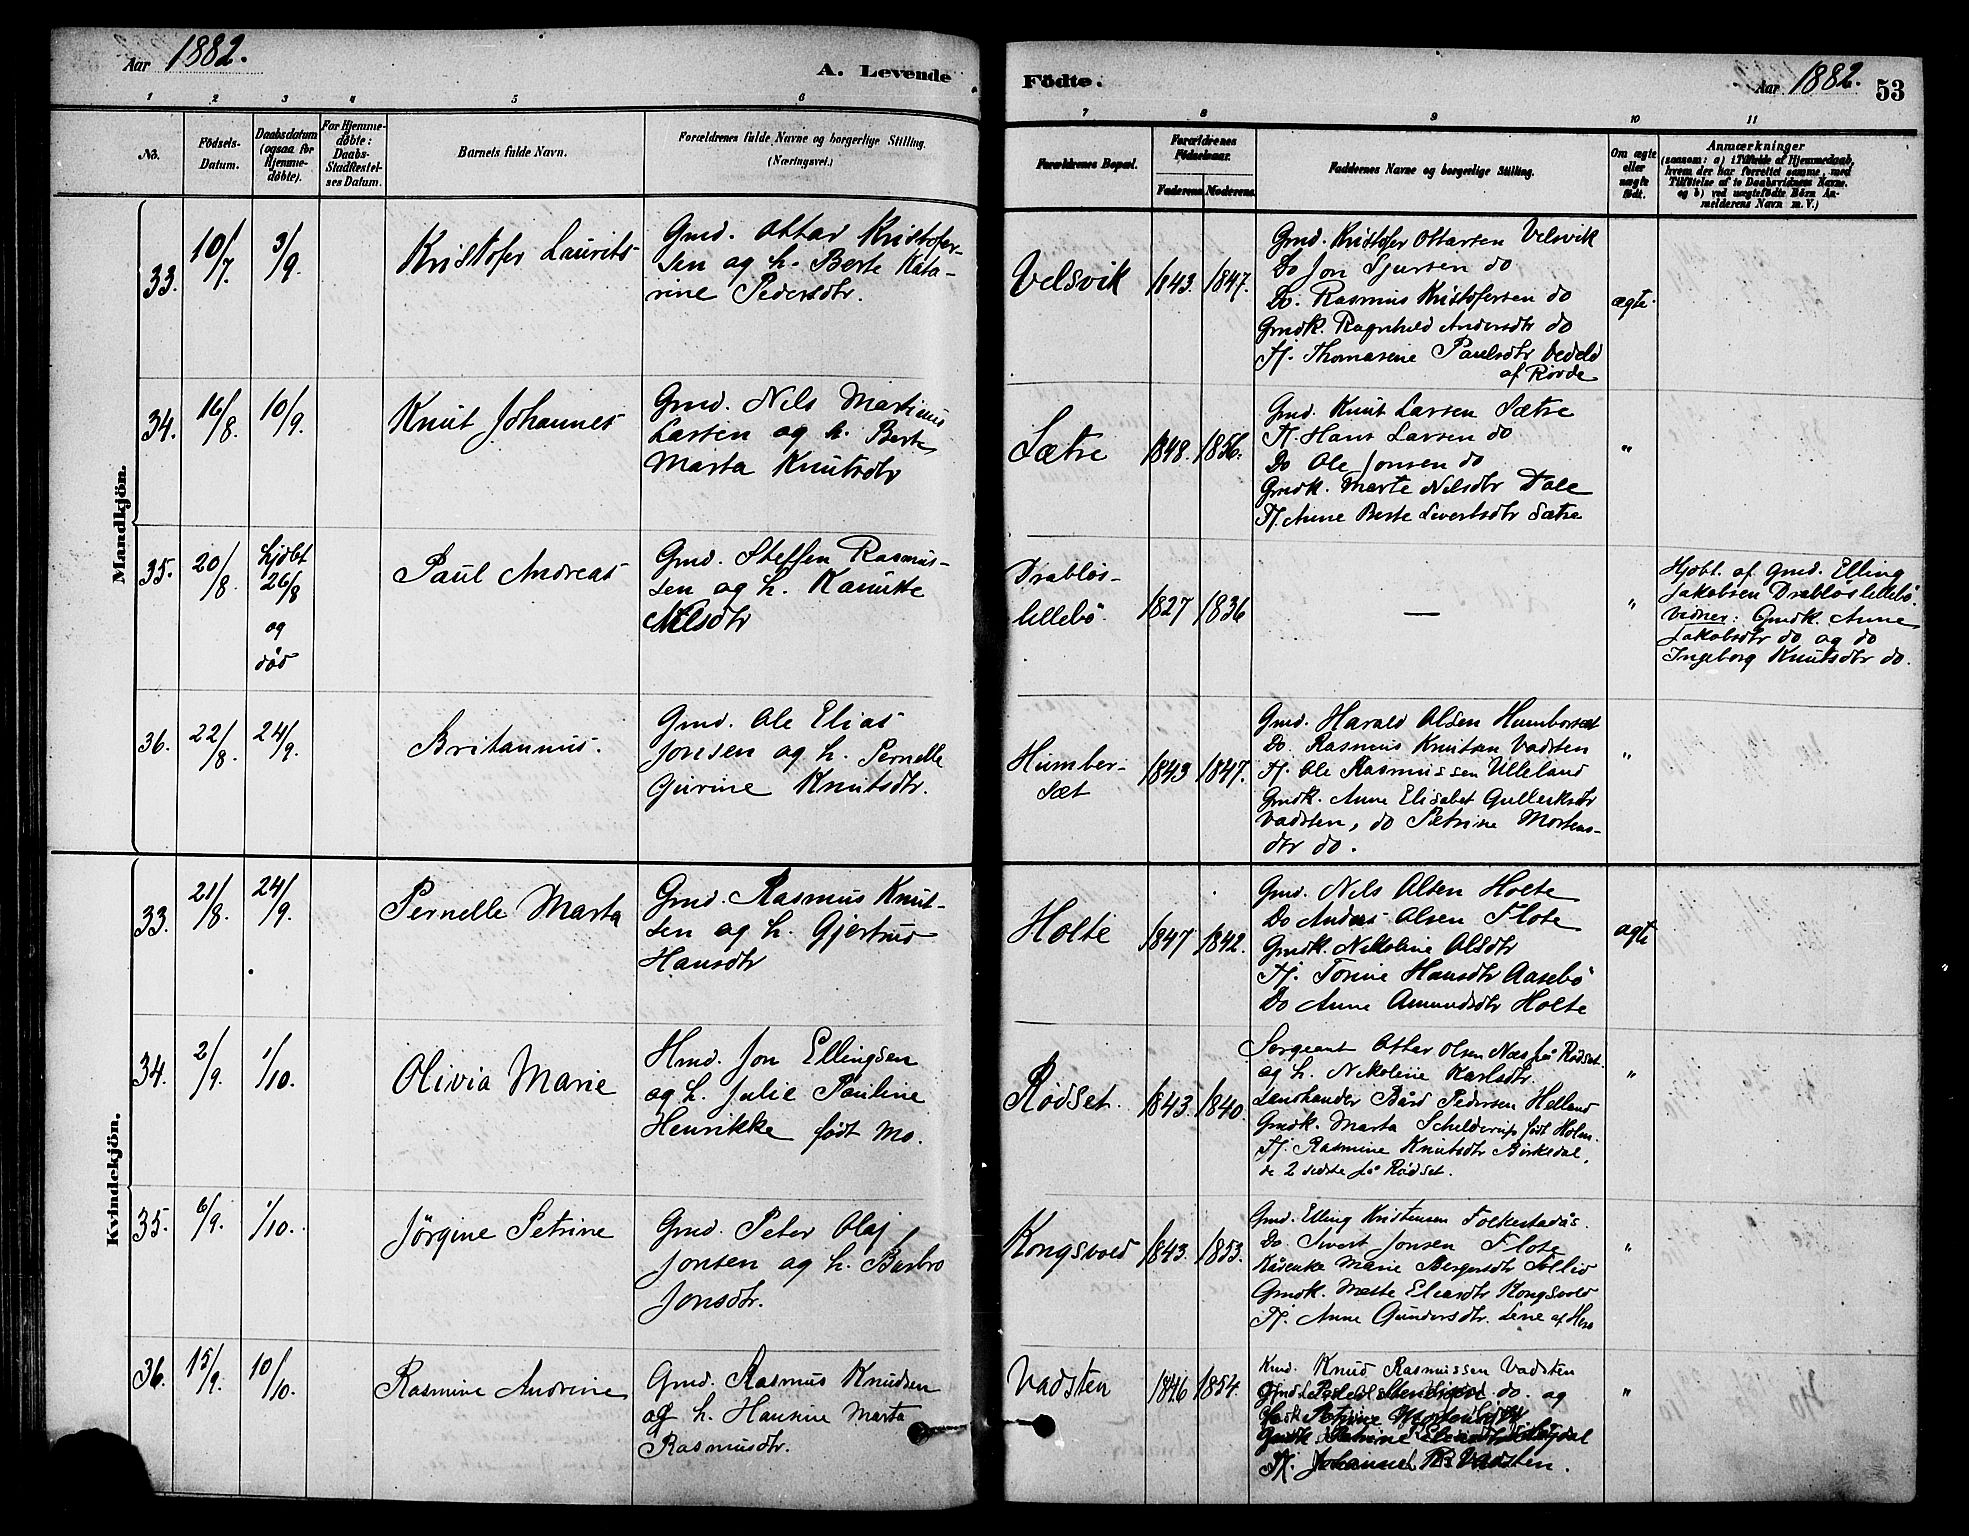 Aar 1882.
A. Levende
Födte.
Aar 1882.
53
1 2 3 4 5 6 7 8 9 10 11
No.
Födsels-
Datum.
Daabsdatum
(ogsaa for
Hjemme-
døbte).
For Hjemme-
døbte:
Daabs-
Stadfæstel-
ses Datum.
Barnets fulde Navn.
Forældrenes fulde Navne og borgerlige Stilling.
(Næringsvei.)
Forældrenes Bopæl.
Forældrenes
Födselsaar.
Faderens. Moderens.
Faddernes Navne og borgerlige Stilling.
Om ægte
eller
uægte
födt.
Anmærkninger
(saasom: a) i Tilfælde af Hjemmedaab,
hvem der har forrettet samme, med
Tilføielse af to Daabsvidners Navne.
og b) ved uægtefødte Börn An-
melderens Navn m. V.)
Mandkjön.
33.
10/7
3/9.
Kristofer Laurits
Gmd. Ottar Kristofer-
sen og h. Berte Kata-
rine Pedersdtr.
Velsvik
1843. 1847.
Gmd. Kristofer Ottarsen Velsvik
Do Jon Sjursen do
Do. Rasmus Kristofersen do
Gmdk. Ragnhild Andersdtr do
Pj. Thomasine Paulsdtr Vedeld
af Rovde
ægte.
34.
16/8.
10/9.
Knut Johannes
Gmd. Nils Martinus
Larsen og h. Berte
Marta Knutsdtr
Sætre
1848. 1856.
Gmd. Knut Larsen Sætre
Pj. Hans Larsen do
Do Ole Jonsen do
Gmdk. Marte Nilsdtr Dale
Pj. Anne Berte Sivertsdtr Sætre
"
35.
20/8.
hjdbt
26/8
og
død
Paul Andreas
Gmd. Steffen Rasmus-
sen og h. Kanutte
Nilsdtr
Drabløs-
lillebø
1827 1836
—
"
Hjdbt. af Gmd. Elling
Jakobsen Drabløslillebø.
Vidner: Gmdk. Anne
Jakobsdtr do og do
Ingeborg Knutsdtr do.
36.
22/8.
24/9.
Britannus.
Gmd. Ole Elias
Jonsen og h. Pernelle
Gurine Knutsdtr.
Humber-
sæt
1843 1847.
Gmd. Harald Olsen Humborsæt
Do. Rasmus Knutsen Vadsten
Pj. Ole Rasmussen Ulleland
Gmdk. Anne Elisabet Gulleiksdtr
Vadsten, do Petrine Mortens-
dtr do.
"
Kvindekjön.
33.
21/8.
24/9.
Pernelle Marta
Gmd. Rasmus Knut-
sen og h. Gjertrud
Hansdtr
Holte
1847 1842.
Gmd. Nils Olsen Holte
Do Anders Olsen Flote
Gmdk. Nikoline Olsdtr
Pj. Torine Hansdtr Aasebø
Do Anne Amundsdtr Holte
ægte
34.
2/9.
1/10.
Olivia Marie
Hmd. Jon Ellingsen
og h. Julie Pauline
Henrikke født Mo.
Rødset.
1843. 1840.
Sergeant Otter Olsen Næs på Rødset.
og h. Nikoline Karlsdtr.
Landhandler Bård Pedersen Helland
Gmdk. Marta Schelderup født Holm.
Pj. Rasmine Knutsdtr Birkedal,
de 2 sidste på Rødset.
"
35.
6/9.
1/10.
Jørgine Petrine
Gmd. Peter Olaj
Jonsen og h. Barbro
Jonsdtr.
Kongsvold
1843. 1853.
Gmd. Elling Kristensen Folkestadås.
Do. Sivert Jonsen Flote
Kårenke Marie Bergersdtr Follid
Gmdk. Mette Eliasdtr Kongsvold
Pj. Anne Gundersdtr. Lene af Herø
"
36.
15/9.
10/10.
Rasmine Andrine
Gmd. Rasmus Knudsen
og h. Hansine Marta
Rasmusdtr.
Vadsten
1846 1854.
Kmd. Knud Rasmussen Vadsten
do. og
Pj. Johannes R. Vadsten.
"